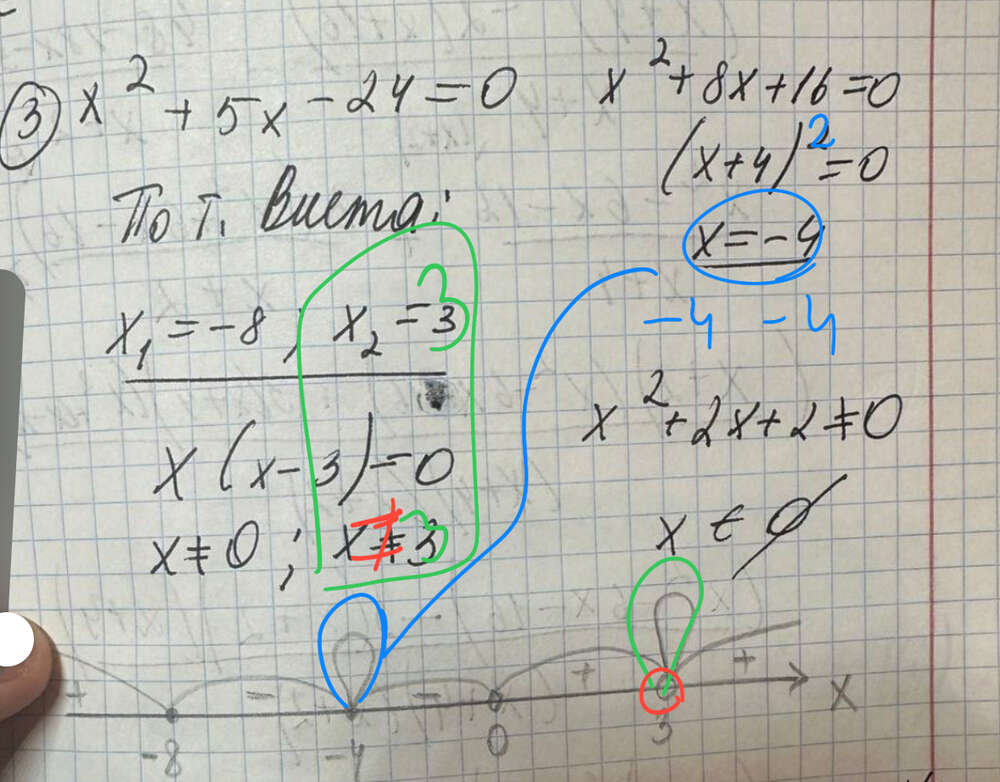 ③ x² + 5x - 24 = 0
По т. Виета:
x₁ = -8 ; x₂ = 3
x (x - 3) = 0
x ≠ 0 ; x ≠ 3
x² + 8x + 16 = 0
(x + 4)² = 0
x = -4
-4 -4
x² + 2x + 2 ≠ 0
x ∈ ∅
+ - - + + x
-8 -4 0 3